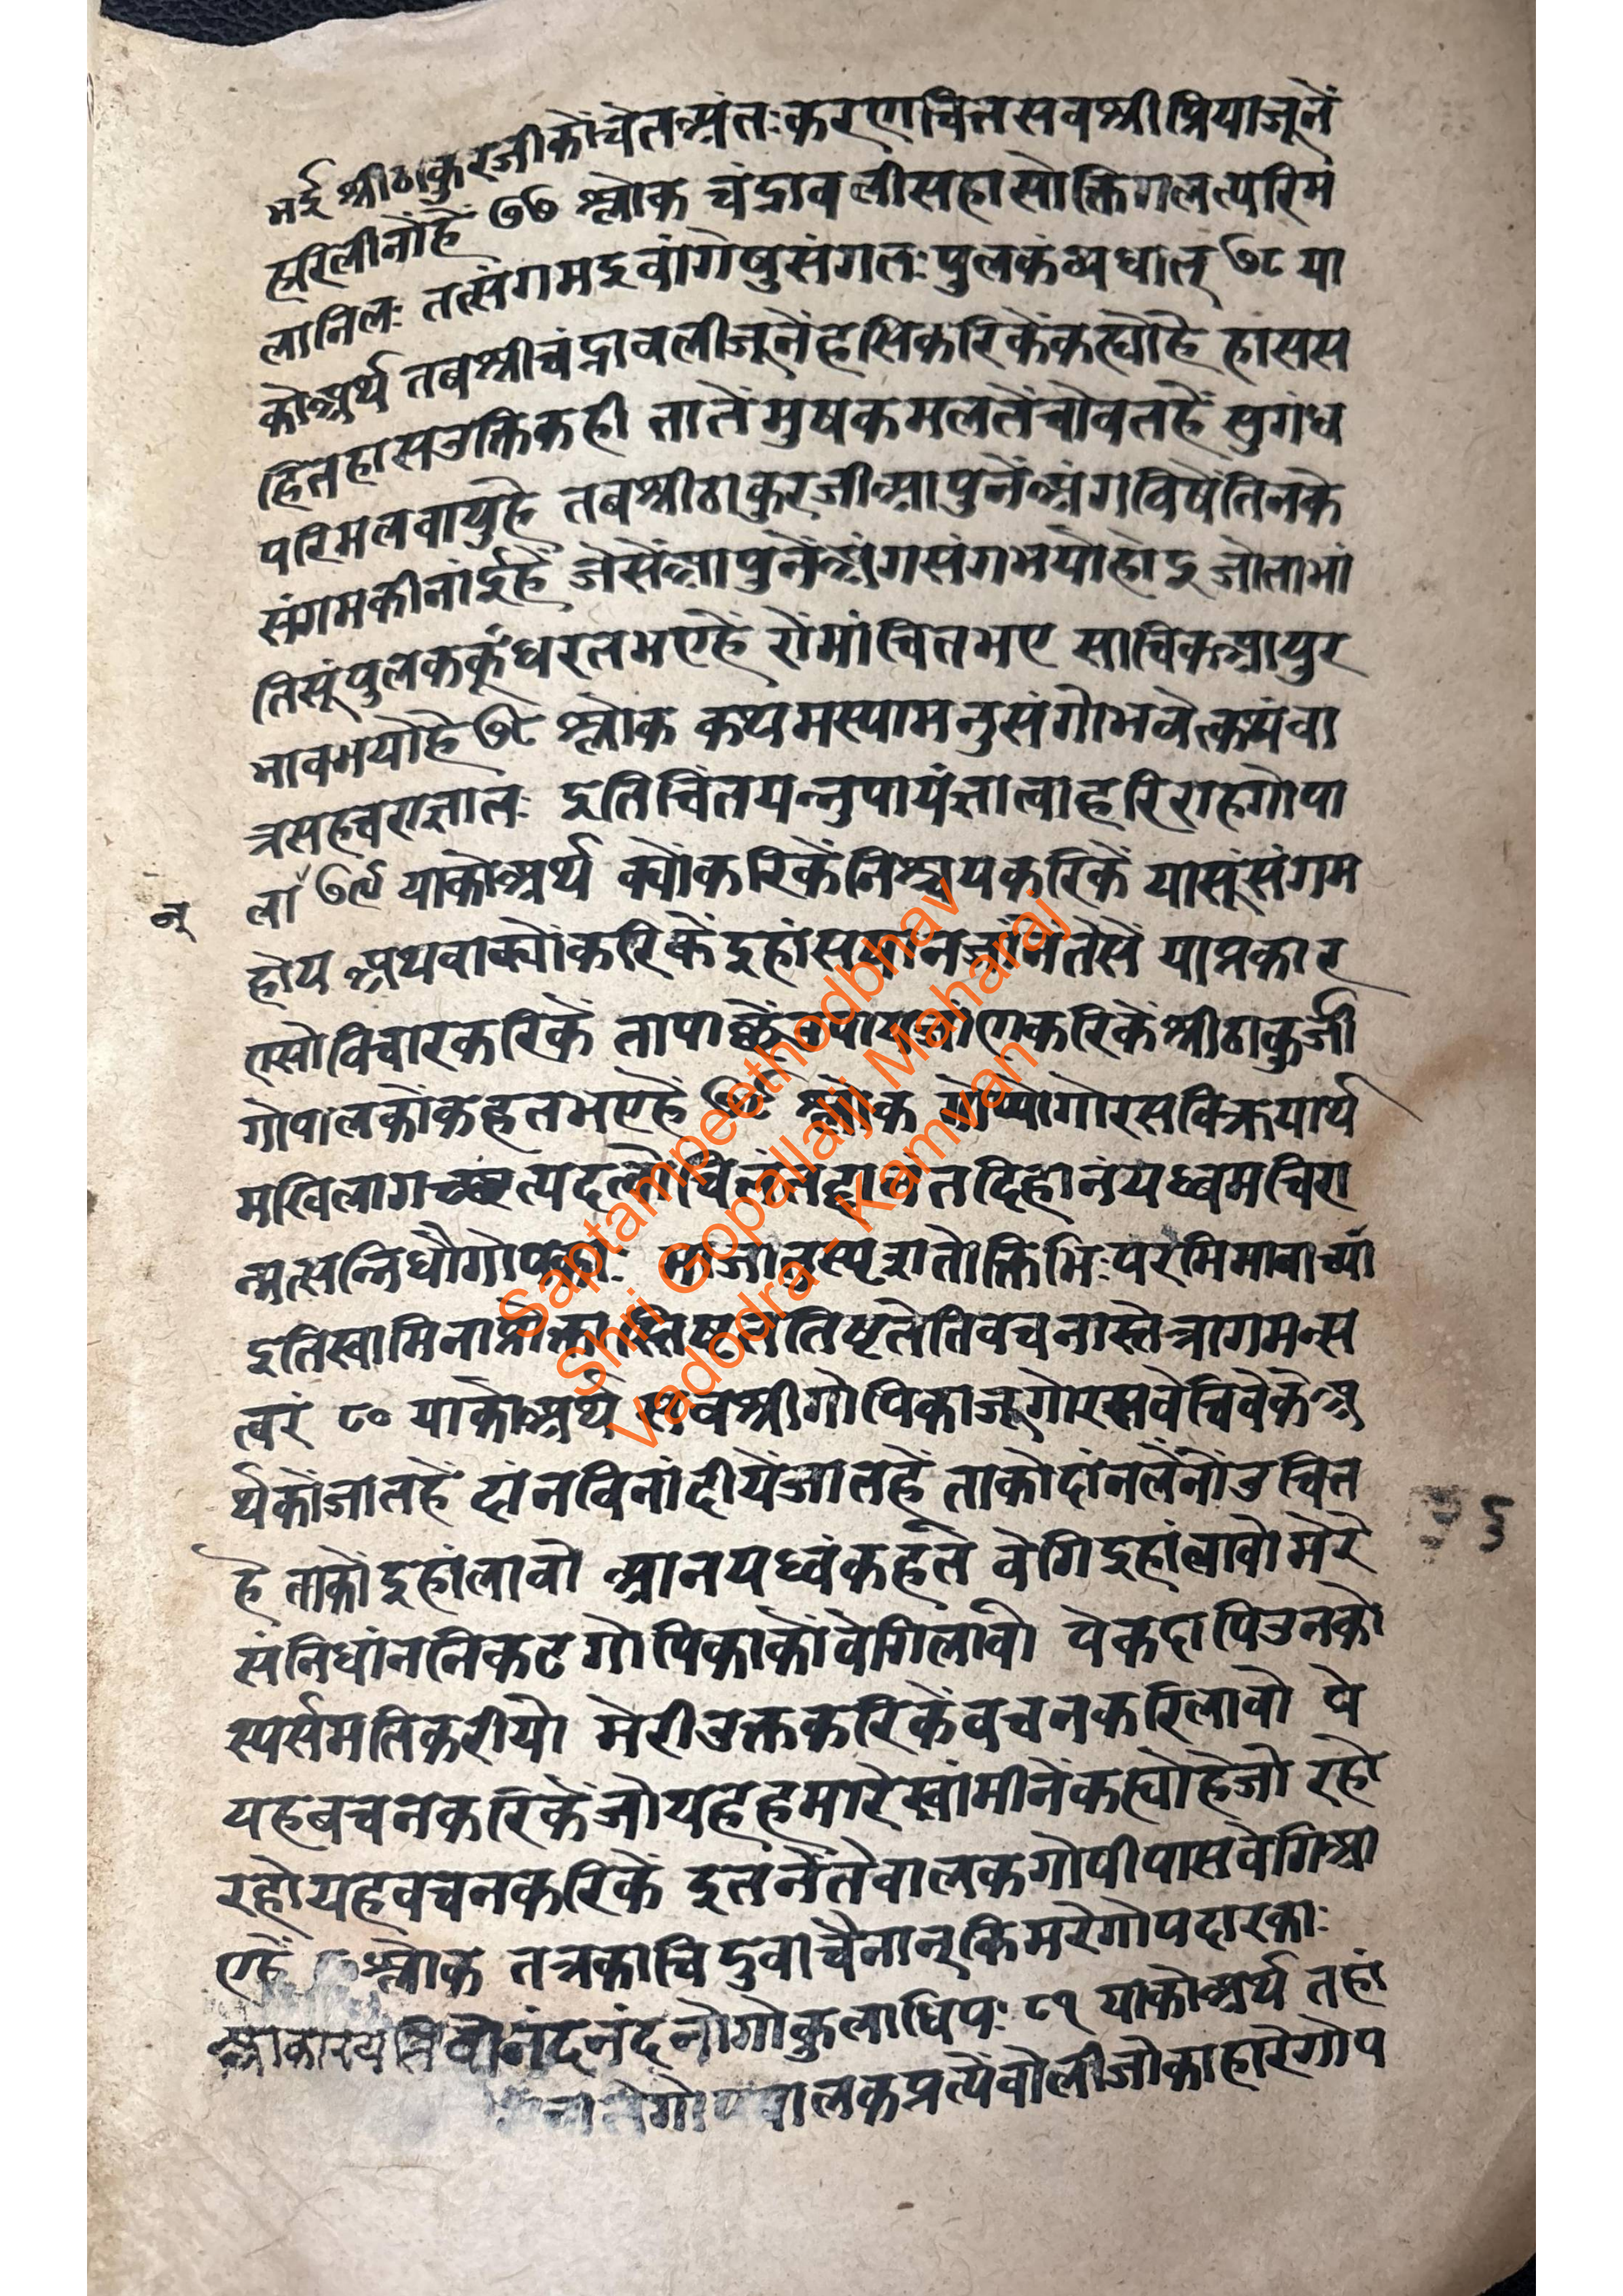 भई श्रीठाकुरजीकोंचेतअंतःकरणचित्तसवश्रीप्रियाजूनें
हरिलीनोंहैं ७७ श्लोक चंद्रावलीसहासोक्तिगलत्परिम
लानिलः तत्संगमइवांगेषुसंगतःपुलकंव्यधात् ७८ या
कोअर्थ तबश्रीचंद्रावलीजूनेंहसिकरिकेंकह्योहै हाससस
हितहासउक्तिकही तातेंमुषकमलतेंचोवतहैं सुगंध
परिमलवायुहै तबश्रीठाकुरजीआपुनेंअंगविषेंतिनके
संगमकीनांईहैं जेसेंआपुनेंअंगसंगभयोहोइ जोताभां
तिसूंपुलककूंधरतभएहैं रोमांचितभए सात्विकआयुर
भावभयोहै ७८ श्लोक कथमस्यामनुसंगोभवेत्कथंवा
त्रसहचराज्ञातः इतिचिंतयन्नुपायंज्ञात्वाहरिराहगोपा
न्
ला ७९ याकोअर्थ क्योंकरिकेंनिश्चयकरिकें यासूंसंगम
होय अथवाक्योंकरिकेंइहांसखानजांनेंतेसें याप्रकार
एसोविचारकरिकें तापाछेंउपायजांणकरिकेंश्रीठाकुर्जी
गोपालकोंकहतभएहैं ७९ श्लोक गोप्योगोरसविक्रयार्थ
मखिलागच्छंत्यदत्वोचितं दानंतदिहानंयध्वमचिरा
न्मत्सन्निधौगोपिकाः माजातुस्पृशतोक्तिभिःपरमिमावाच्या
इतिस्वामिनाप्रोक्तास्तिष्टततिष्टतेतिवचनास्तेत्रागमन्स
त्वरं ८० याकोअर्थ सबश्रीगोपिकाजूगोरसवेचिवेकेअ
र्थकोंजातहें दांनविनांदीयेंजातहें ताकोदांनलेंनोंउचित
है ताकोंइहांलावो आनयध्वंकहतें वेगिइहांलावोमेरे
संनिधांननिकटगोपिकाकोंवेगिलावो पेकदापिउनको
स्पर्समतिकरीयो मेरीउक्तकरिकेंवचनकरिलावो पे
यहबचनकरिकेंजोयहहमारेस्वांमीनेंकह्योहेजो रहो
रहोयहवचनकरिकें इतनेंतेवालकगोपीपासवेगिआ
एहें श्लोक तत्रकाचिदुवाचैनान्किमरेगोपदारकाः
आकारयतिवोनंदनंदनोगोकुलाधिपः ८१ याकोअर्थ तहां
गोपबालकप्रत्येंवोलीजोकाहारेगोप